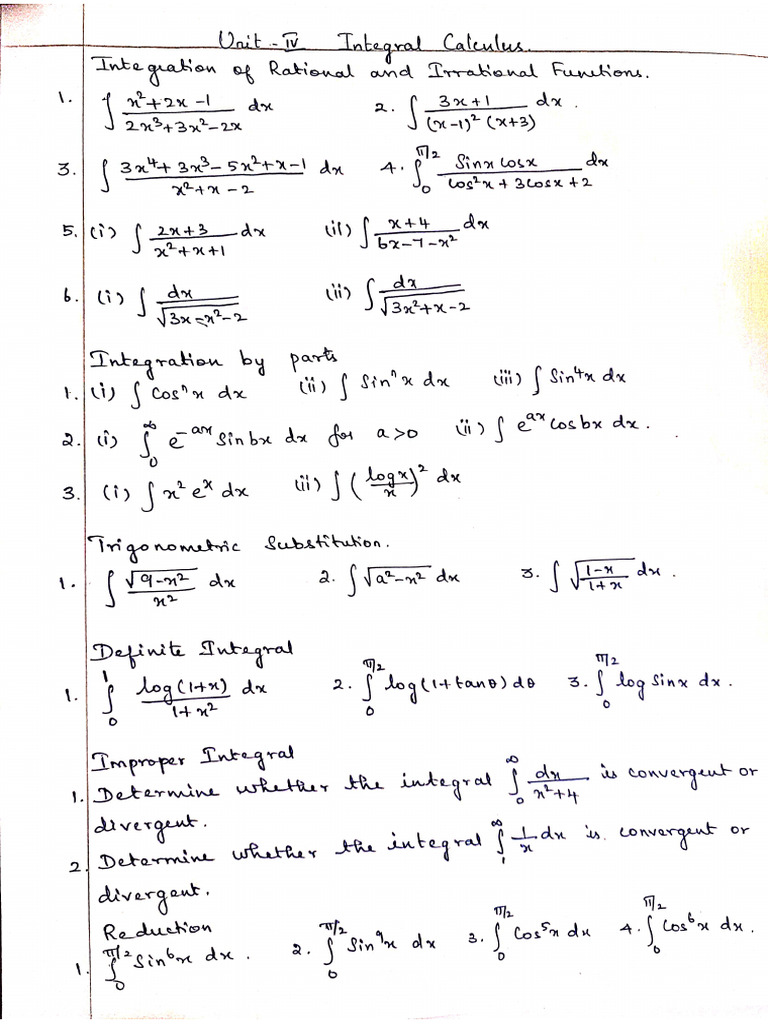 Unit - IV Integral Calculus.
Integration of Rational and Irrational Functions.
1. ∫ (x²+2x-1)/(2x³+3x²-2x) dx 2. ∫ (3x+1)/((x-1)²(x+3)) dx.
3. ∫ (3x⁴+3x³-5x²+x-1)/(x²+x-2) dx 4. ∫₀^(π/2) (Sinx Cosx)/(Cos²x+3Cosx+2) dx
5. (i) ∫ (2x+3)/(x²+x+1) dx (ii) ∫ (x+4)/(6x-7-x²) dx
6. (i) ∫ dx/√(3x-x²-2) (ii) ∫ dx/√(3x²+x-2)
Integration by parts
1. (i) ∫ Cosⁿx dx (ii) ∫ Sinⁿx dx (iii) ∫ Sin⁴x dx
2. (i) ∫₀^∞ e^(-ax) Sinbx dx for a>0 (ii) ∫ e^(ax) Cosbx dx.
3. (i) ∫ x² eˣ dx (ii) ∫ (logx/x)² dx
Trigonometric Substitution.
1. ∫ √(9-x²)/x² dx 2. ∫ √(a²-x²) dx 3. ∫ √((1-x)/(1+x)) dx.
Definite Integral
1. ∫₀¹ log(1+x)/(1+x²) dx 2. ∫₀^(π/2) log(1+tanθ)dθ 3. ∫₀^(π/2) logSinx dx.
Improper Integral
1. Determine whether the integral ∫₀^∞ dx/(x²+4) is convergent or
divergent.
2. Determine whether the integral ∫₁^∞ 1/x dx is convergent or
divergent.
Reduction
1. ∫₀^(π/2) Sin⁶x dx. 2. ∫₀^(π/2) Sin⁹x dx 3. ∫₀^(π/2) Cos⁵x dx 4. ∫₀^(π/2) Cos⁶x dx.